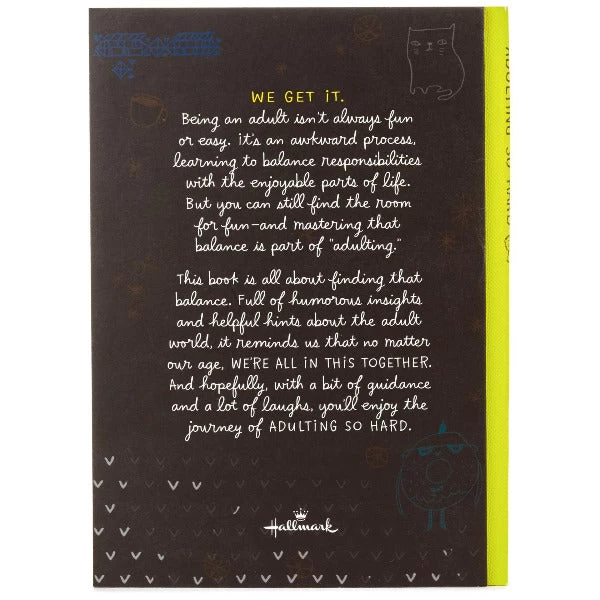 WE GET iT.
Being an adult isn't always fun
or easy. it's an awkward process,
learning to balance responsibilities
with the enjoyable parts of life.
But you can still find the room
for fun–and mastering that
balance is part of "adulting."
This book is all about finding that
balance. Full of humorous insights
and helpful hints about the adult
world, it reminds us that no matter
our age, WE'RE ALL IN THIS TOGETHER.
And hopefully, with a bit of guidance
and a lot of laughs, you'll enjoy the
journey of ADULTING SO HARD.
Hallmark
ADULTING SO HARD